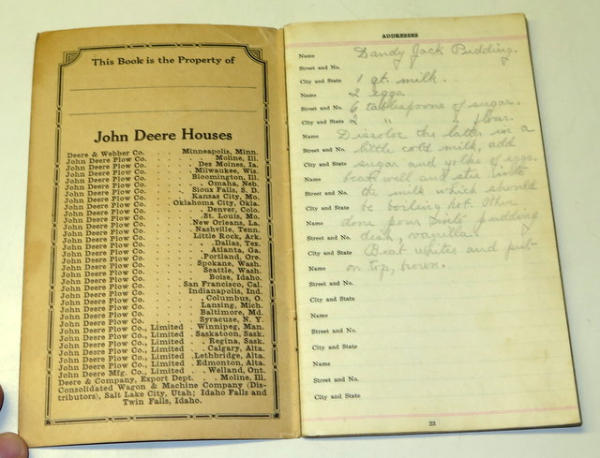 This Book is the Property of
John Deere Houses
Deere & Webber Co. Minneapolis, Minn.
John Deere Plow Co. Moline, Ill.
John Deere Plow Co. Des Moines, Ia.
John Deere Plow Co. Milwaukee, Wis.
John Deere Plow Co. Bloomington, Ill.
John Deere Plow Co. Omaha, Neb.
John Deere Plow Co. Sioux Falls, S. D.
John Deere Plow Co. Kansas City, Mo.
John Deere Plow Co. Oklahoma City, Okla.
John Deere Plow Co. Denver, Colo.
John Deere Plow Co. St. Louis, Mo.
John Deere Plow Co. New Orleans, La.
John Deere Plow Co. Nashville, Tenn.
John Deere Plow Co. Little Rock, Ark.
John Deere Plow Co. Dallas, Tex.
John Deere Plow Co. Atlanta, Ga.
John Deere Plow Co. Portland, Ore.
John Deere Plow Co. Spokane, Wash.
John Deere Plow Co. Seattle, Wash.
John Deere Plow Co. Boise, Idaho.
John Deere Plow Co. San Francisco, Cal.
John Deere Plow Co. Indianapolis, Ind.
John Deere Plow Co. Columbus, O.
John Deere Plow Co. Lansing, Mich.
John Deere Plow Co. Baltimore, Md.
John Deere Plow Co. Syracuse, N. Y.
John Deere Plow Co., Limited Winnipeg, Man.
John Deere Plow Co., Limited Saskatoon, Sask.
John Deere Plow Co., Limited Regina, Sask.
John Deere Plow Co., Limited Calgary, Alta.
John Deere Plow Co., Limited Lethbridge, Alta.
John Deere Plow Co., Limited Edmonton, Alta.
John Deere Mfg. Co., Limited Welland, Ont.
Deere & Company, Export Dept. Moline, Ill.
Consolidated Wagon & Machine Company (Dis-
tributors), Salt Lake City, Utah; Idaho Falls and
Twin Falls, Idaho.
ADDRESSES
Name Dandy Jack Pudding.
Street and No.
City and State 1 qt. milk.
Name 2 eggs
Street and No. 6 tablespoons of sugar.
City and State 2 " " flour.
Name Dissolve the latter in a
Street and No. little cold milk, add
City and State sugar and yolks of eggs.
Name beat well and stir into
Street and No. the milk which should
City and State be boiling hot. When
Name done pour into pudding
Street and No. dish, vanilla.
City and State Beat whites and put
Name on top, brown.
Street and No.
City and State
Name
Street and No.
City and State
Name
Street and No.
City and State
23